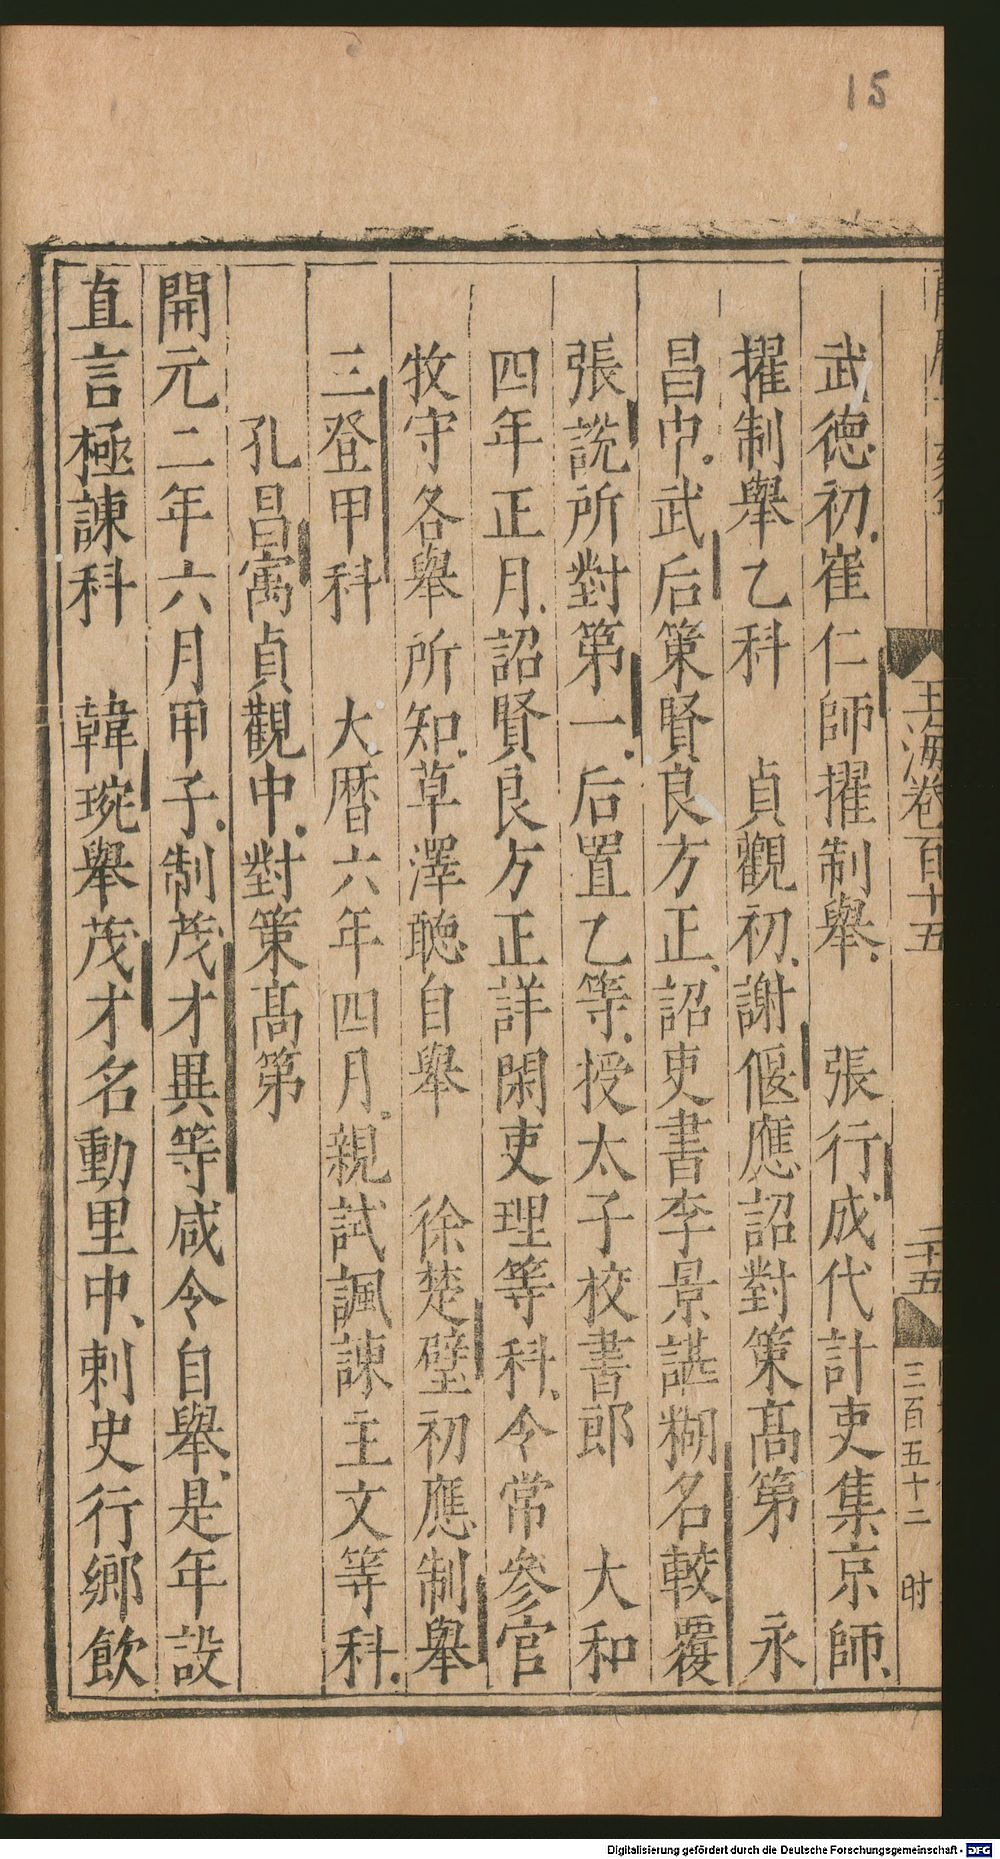 15
玉海卷百十五
二十五
三百五十二
时
武德初崔仁師擢制舉　張行成代計吏集京師
擢制舉乙科　貞觀初謝偃應詔對策高第　永
昌中武后策賢良方正詔吏書李景諶糊名較覆
張說所對第一后置乙等授太子校書郎　大和
四年正月詔賢良方正詳閑吏理等科令常參官
牧守各舉所知草澤聽自舉　徐楚璧初應制舉
三登甲科　大曆六年四月親試諷諫主文等科
孔昌寓貞觀中對策高第
開元二年六月甲子制茂才異等咸令自舉是年設
直言極諫科　韓琬舉茂才名動里中刺史行鄉飲
Digitalisierung gefördert durch die Deutsche Forschungsgemeinschaft - DFG